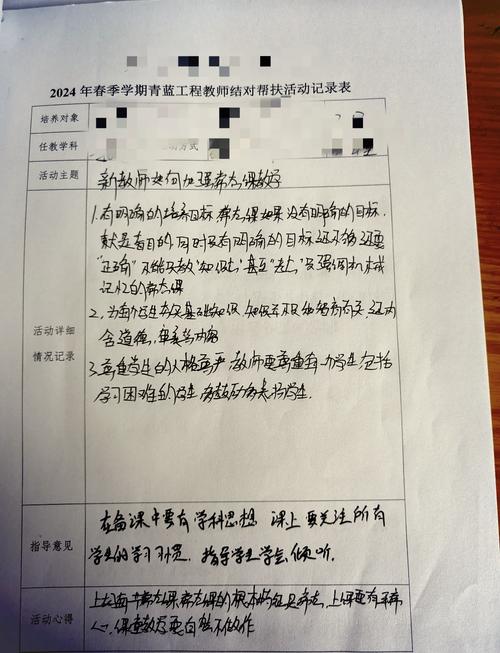 2024 年春季学期青蓝工程教师结对帮扶活动记录表
培养对象
任教学科
方式
活动主题 新教师如何加强常态课教好
活动详细
情况记录
1.有明确的培养目标,常态课如果没有明确的目标,
就是盲目的,同时仅有明确的目标还不够还要
"正确"不能只教"知识" 甚至 只强调机械
记忆的常态课
2.为 学生 基础知识,知识不只 ,还内
含道德,审美等内容
3.尊重学生的人格尊严 教师要尊重每一办学生,包括
学习困难的学生, 学生.
指导意见
在备课中要有学科思想 课上要关注所有
学生的学习习惯,指导学生学会倾听.
活动心得
上好每一节常态课常态课的根本特征是常态,上课要有平常
心,课堂教学要自然不做作